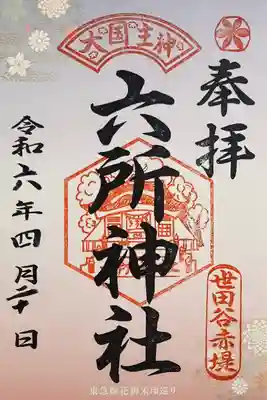 奉拝
大国主神
六所神社
世田谷赤堤
令和六年四月二十日
東急線花御朱印巡り